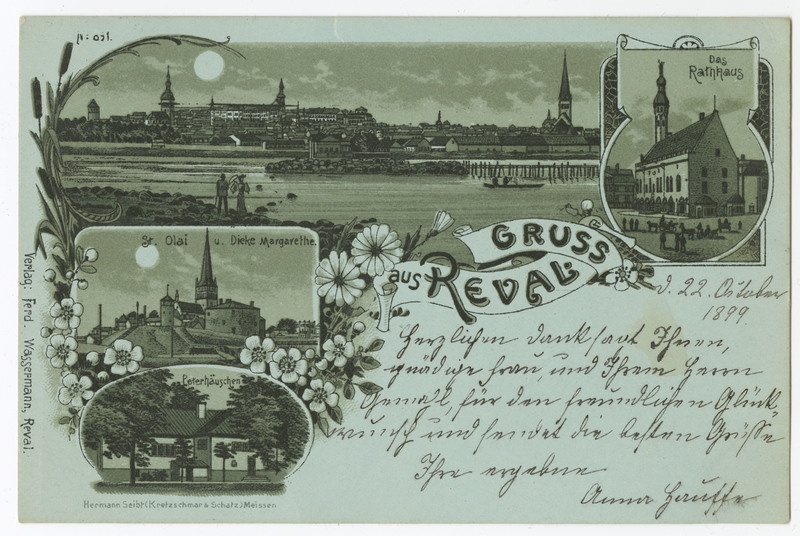 Das
Rathhaus
St. Olai u. Dicke Margarethe.
GRUSS
aus REVAL.
d. 22. October
1899.
Herzlichen Dank sagt Ihnen,
gnädige Frau, und Ihrem Herrn
Gemahl, für den freundlichen Glück-
wunsch und sendet die besten Grüsse
Ihre ergebene
Anna Hauffe
Peterhäuschen
Verlag: Ferd. Wassermann, Reval.
Hermann Seibt (Kretzschmar & Schatz) Meissen